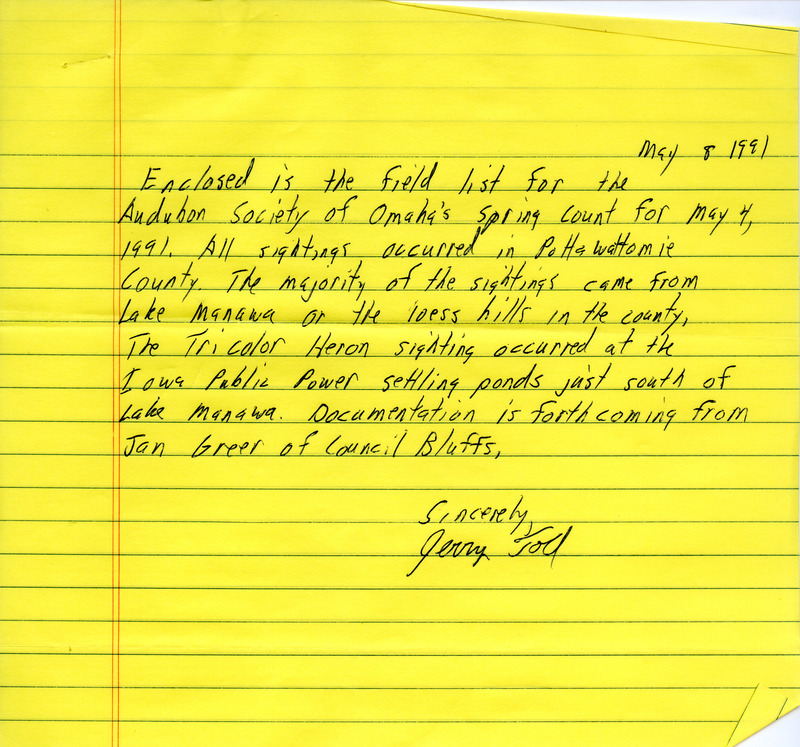 May 8 1991
Enclosed is the field list for the
Audubon Society of Omaha's spring count for May 4,
1991. All sightings occurred in Pottawattomie
County. The majority of the sightings came from
Lake Manawa or the loess hills in the county,
The Tricolor Heron sighting occurred at the
Iowa Public Power settling ponds just south of
Lake Manawa. Documentation is forthcoming from
Jan Greer of Council Bluffs,
Sincerely,
Jerry Toll